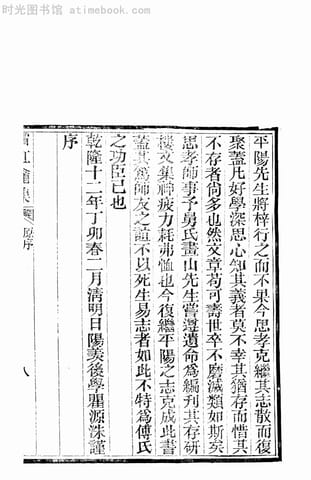 时光图书馆 atimebook.com
平陽先生將梓行之而不果今思孝克繼其志散而復
聚蓋凡好學深思心知其義者莫不幸其猶存而惜其
不存者尚多也然文章苟可壽世卒不磨滅類如斯矣
思孝師事予舅氏畫山先生嘗遵遺命爲編刋其存研
樓文集神疲力耗弗恤也今復繼平陽之志克成此書
蓋其爲師友之誼不以死生易志者如此不特爲傅氏
之功臣已也
乾隆十二年丁卯春二月淸明日陽羨後學瞿源洙謹
序
霜紅龕集
原序
八